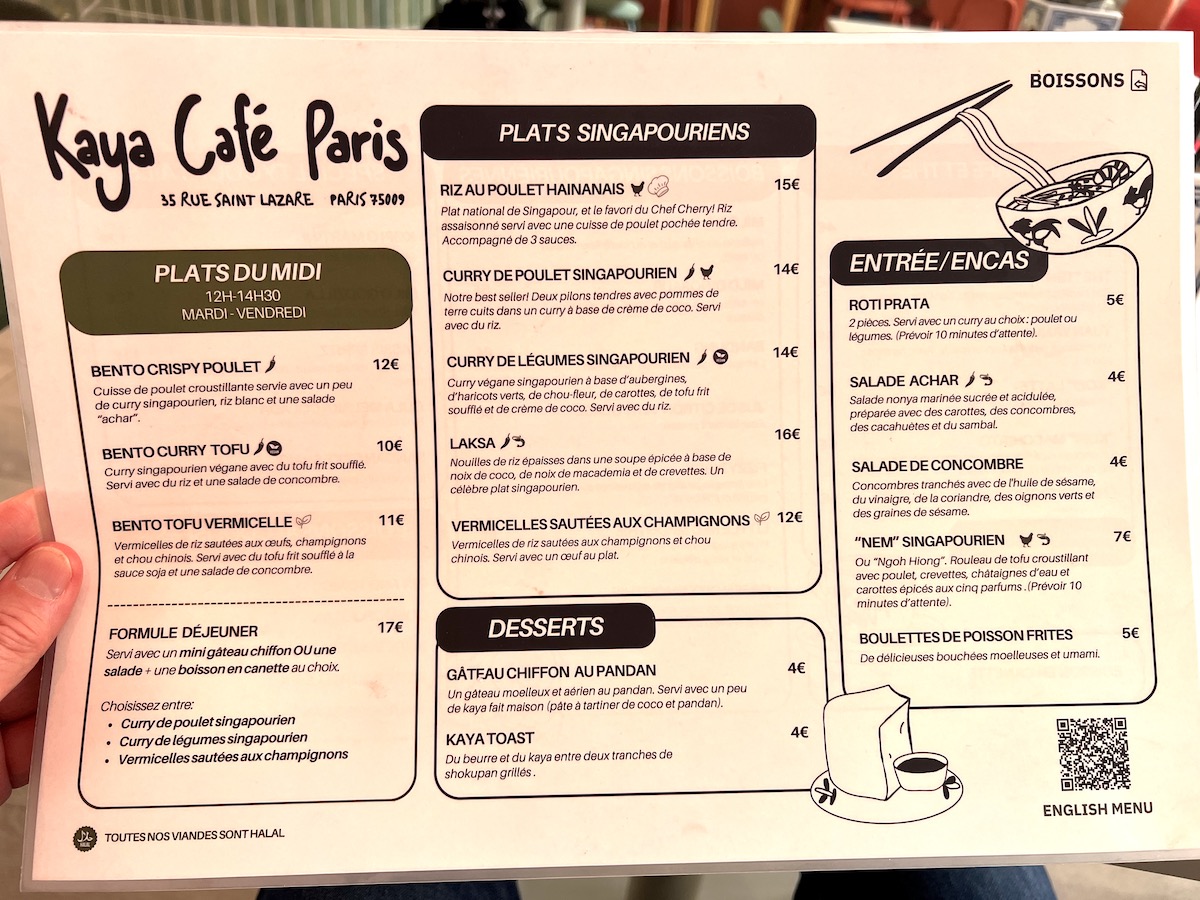 Kaya Café Paris
35 RUE SAINT LAZARE PARIS 75009
PLATS DU MIDI
12H-14H30
MARDI - VENDREDI
BENTO CRISPY POULET 12€
Cuisse de poulet croustillante servie avec un peu
de curry singapourien, riz blanc et une salade
"achar".
BENTO CURRY TOFU 10€
Curry singapourien végane avec du tofu frit soufflé.
Servi avec du riz et une salade de concombre.
BENTO TOFU VERMICELLE 11€
Vermicelles de riz sautées aux œufs, champignons
et chou chinois. Servi avec du tofu frit soufflé à la
sauce soja et une salade de concombre.
FORMULE DÉJEUNER 17€
Servi avec un mini gâteau chiffon OU une
salade + une boisson en canette au choix.
Choisissez entre:
• Curry de poulet singapourien
• Curry de légumes singapourien
• Vermicelles sautées aux champignons
TOUTES NOS VIANDES SONT HALAL
PLATS SINGAPOURIENS
RIZ AU POULET HAINANAIS 15€
Plat national de Singapour, et le favori du Chef Cherry! Riz
assaisonné servi avec une cuisse de poulet pochée tendre.
Accompagné de 3 sauces.
CURRY DE POULET SINGAPOURIEN 14€
Notre best seller! Deux pilons tendres avec pommes de
terre cuits dans un curry à base de crème de coco. Servi
avec du riz.
CURRY DE LÉGUMES SINGAPOURIEN 14€
Curry végane singapourien à base d'aubergines,
d'haricots verts, de chou-fleur, de carottes, de tofu frit
soufflé et de crème de coco. Servi avec du riz.
LAKSA 16€
Nouilles de riz épaisses dans une soupe épicée à base de
noix de coco, de noix de macademia et de crevettes. Un
célèbre plat singapourien.
VERMICELLES SAUTÉES AUX CHAMPIGNONS 12€
Vermicelles de riz sautées aux champignons et chou
chinois. Servi avec un œuf au plat.
DESSERTS
GÂTEAU CHIFFON AU PANDAN 4€
Un gâteau moelleux et aérien au pandan. Servi avec un peu
de kaya fait maison (pâte à tartiner de coco et pandan).
KAYA TOAST 4€
Du beurre et du kaya entre deux tranches de
shokupan grillés .
BOISSONS
ENTRÉE/ENCAS
ROTI PRATA 5€
2 pièces. Servi avec un curry au choix : poulet ou
légumes. (Prévoir 10 minutes d'attente).
SALADE ACHAR 4€
Salade nonya marinée sucrée et acidulée,
préparée avec des carottes, des concombres,
des cacahuètes et du sambal.
SALADE DE CONCOMBRE 4€
Concombres tranchés avec de l'huile de sésame,
du vinaigre, de la coriandre, des oignons verts et
des graines de sésame.
"NEM" SINGAPOURIEN 7€
Ou "Ngoh Hiong". Rouleau de tofu croustillant
avec poulet, crevettes, châtaignes d'eau et
carottes épicés aux cinq parfums .(Prévoir 10
minutes d'attente).
BOULETTES DE POISSON FRITES 5€
De délicieuses bouchées moelleuses et umami.
ENGLISH MENU